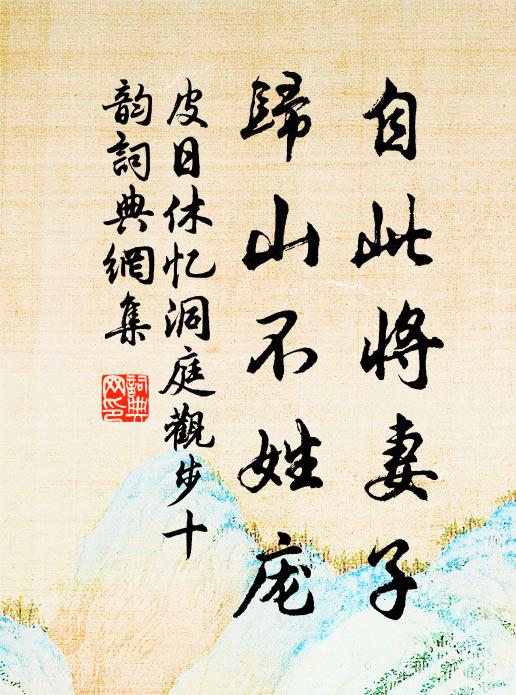 自此將妻子
歸山不姓庞
皮日休忆洞庭觀步十
韵詞典網集
詞典
网印